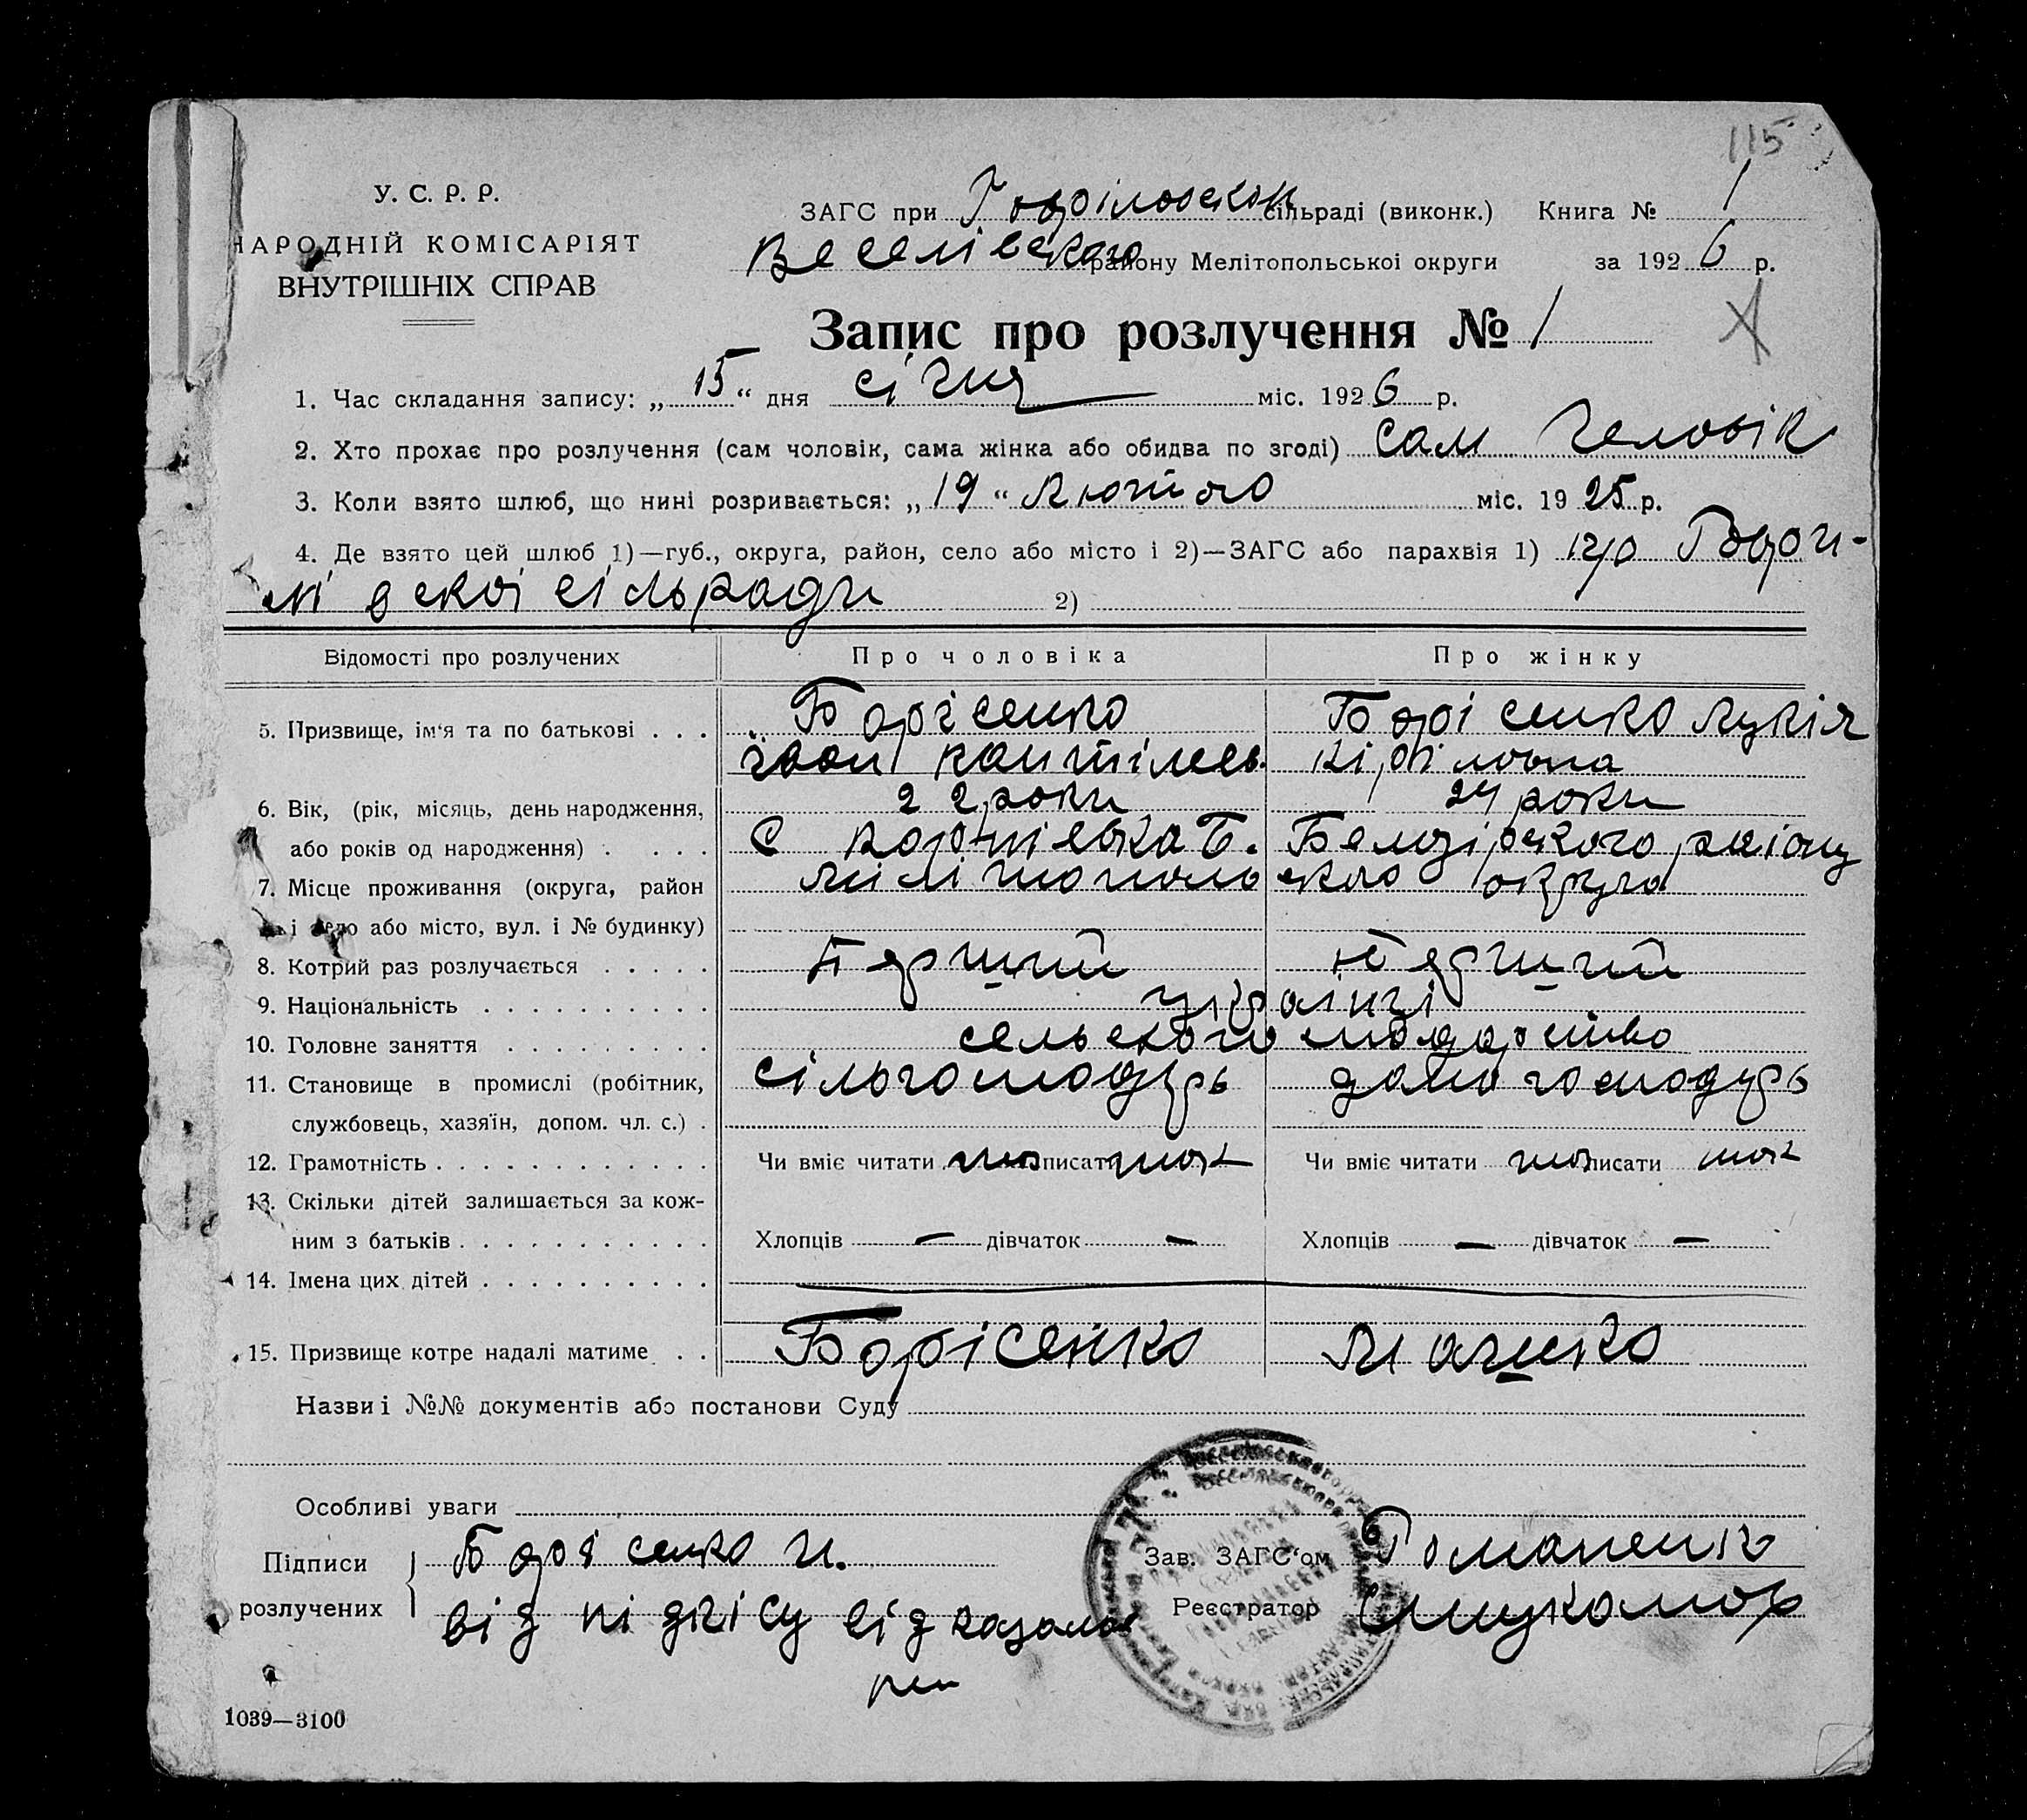 115
У. С. Р. Р.
НАРОДНІЙ КОМІСАРІЯТ
ВНУТРІШНІХ СПРАВ
ЗАГС при сільраді (виконк.) Книга № 1
Веселівского району Мелітопольської округи за 1926 р.
Запис про розлучення № 1
1. Час складання запису: „15“ дня січня міс. 1926 р.
2. Хто прохає про розлучення (сам чоловік, сама жінка або обидва по згоді) сам человік
3. Коли взято шлюб, що нині розривається: „19“ лютого міс. 1925 р.
4. Де взято цей шлюб 1)—губ., округа, район, село або місто і 2)—ЗАГС або парахвія 1)
сільради 2)
Відомості про розлучених Про чоловіка Про жінку
5. Призвище, ім‘я та по батькові . . . Борісенко Борісенко Лукія
6. Вік, (рік, місяць, день народження, 22 роки 24 роки
або років од народження) . . . . С
7. Місце проживання (округа, район округа
і село або місто, вул. і № будинку)
8. Котрий раз розлучається . . . . . Перший Перший
9. Національність . . . . . . . . . . українці
10. Головне заняття . . . . . . . . . сельского
11. Становище в промислі (робітник,
службовець, хазяїн, допом. чл. с.) .
12. Грамотність . . . . . . . . . . . . Чи вміє читати так писати так Чи вміє читати так писати так
13. Скільки дітей залишається за кож-
ним з батьків . . . . . . . . . . . Хлопців — дівчаток — Хлопців — дівчаток —
14. Імена цих дітей . . . . . . . . . .
15. Призвище котре надалі матиме . . Борісенко Машко
Назви і №№ документів або постанови Суду
Особливі уваги
Підписи Борісенко И. Зав. ЗАГС‘ом Романенко
розлучених від підпісу відказалас Реєстратор
1039—3100